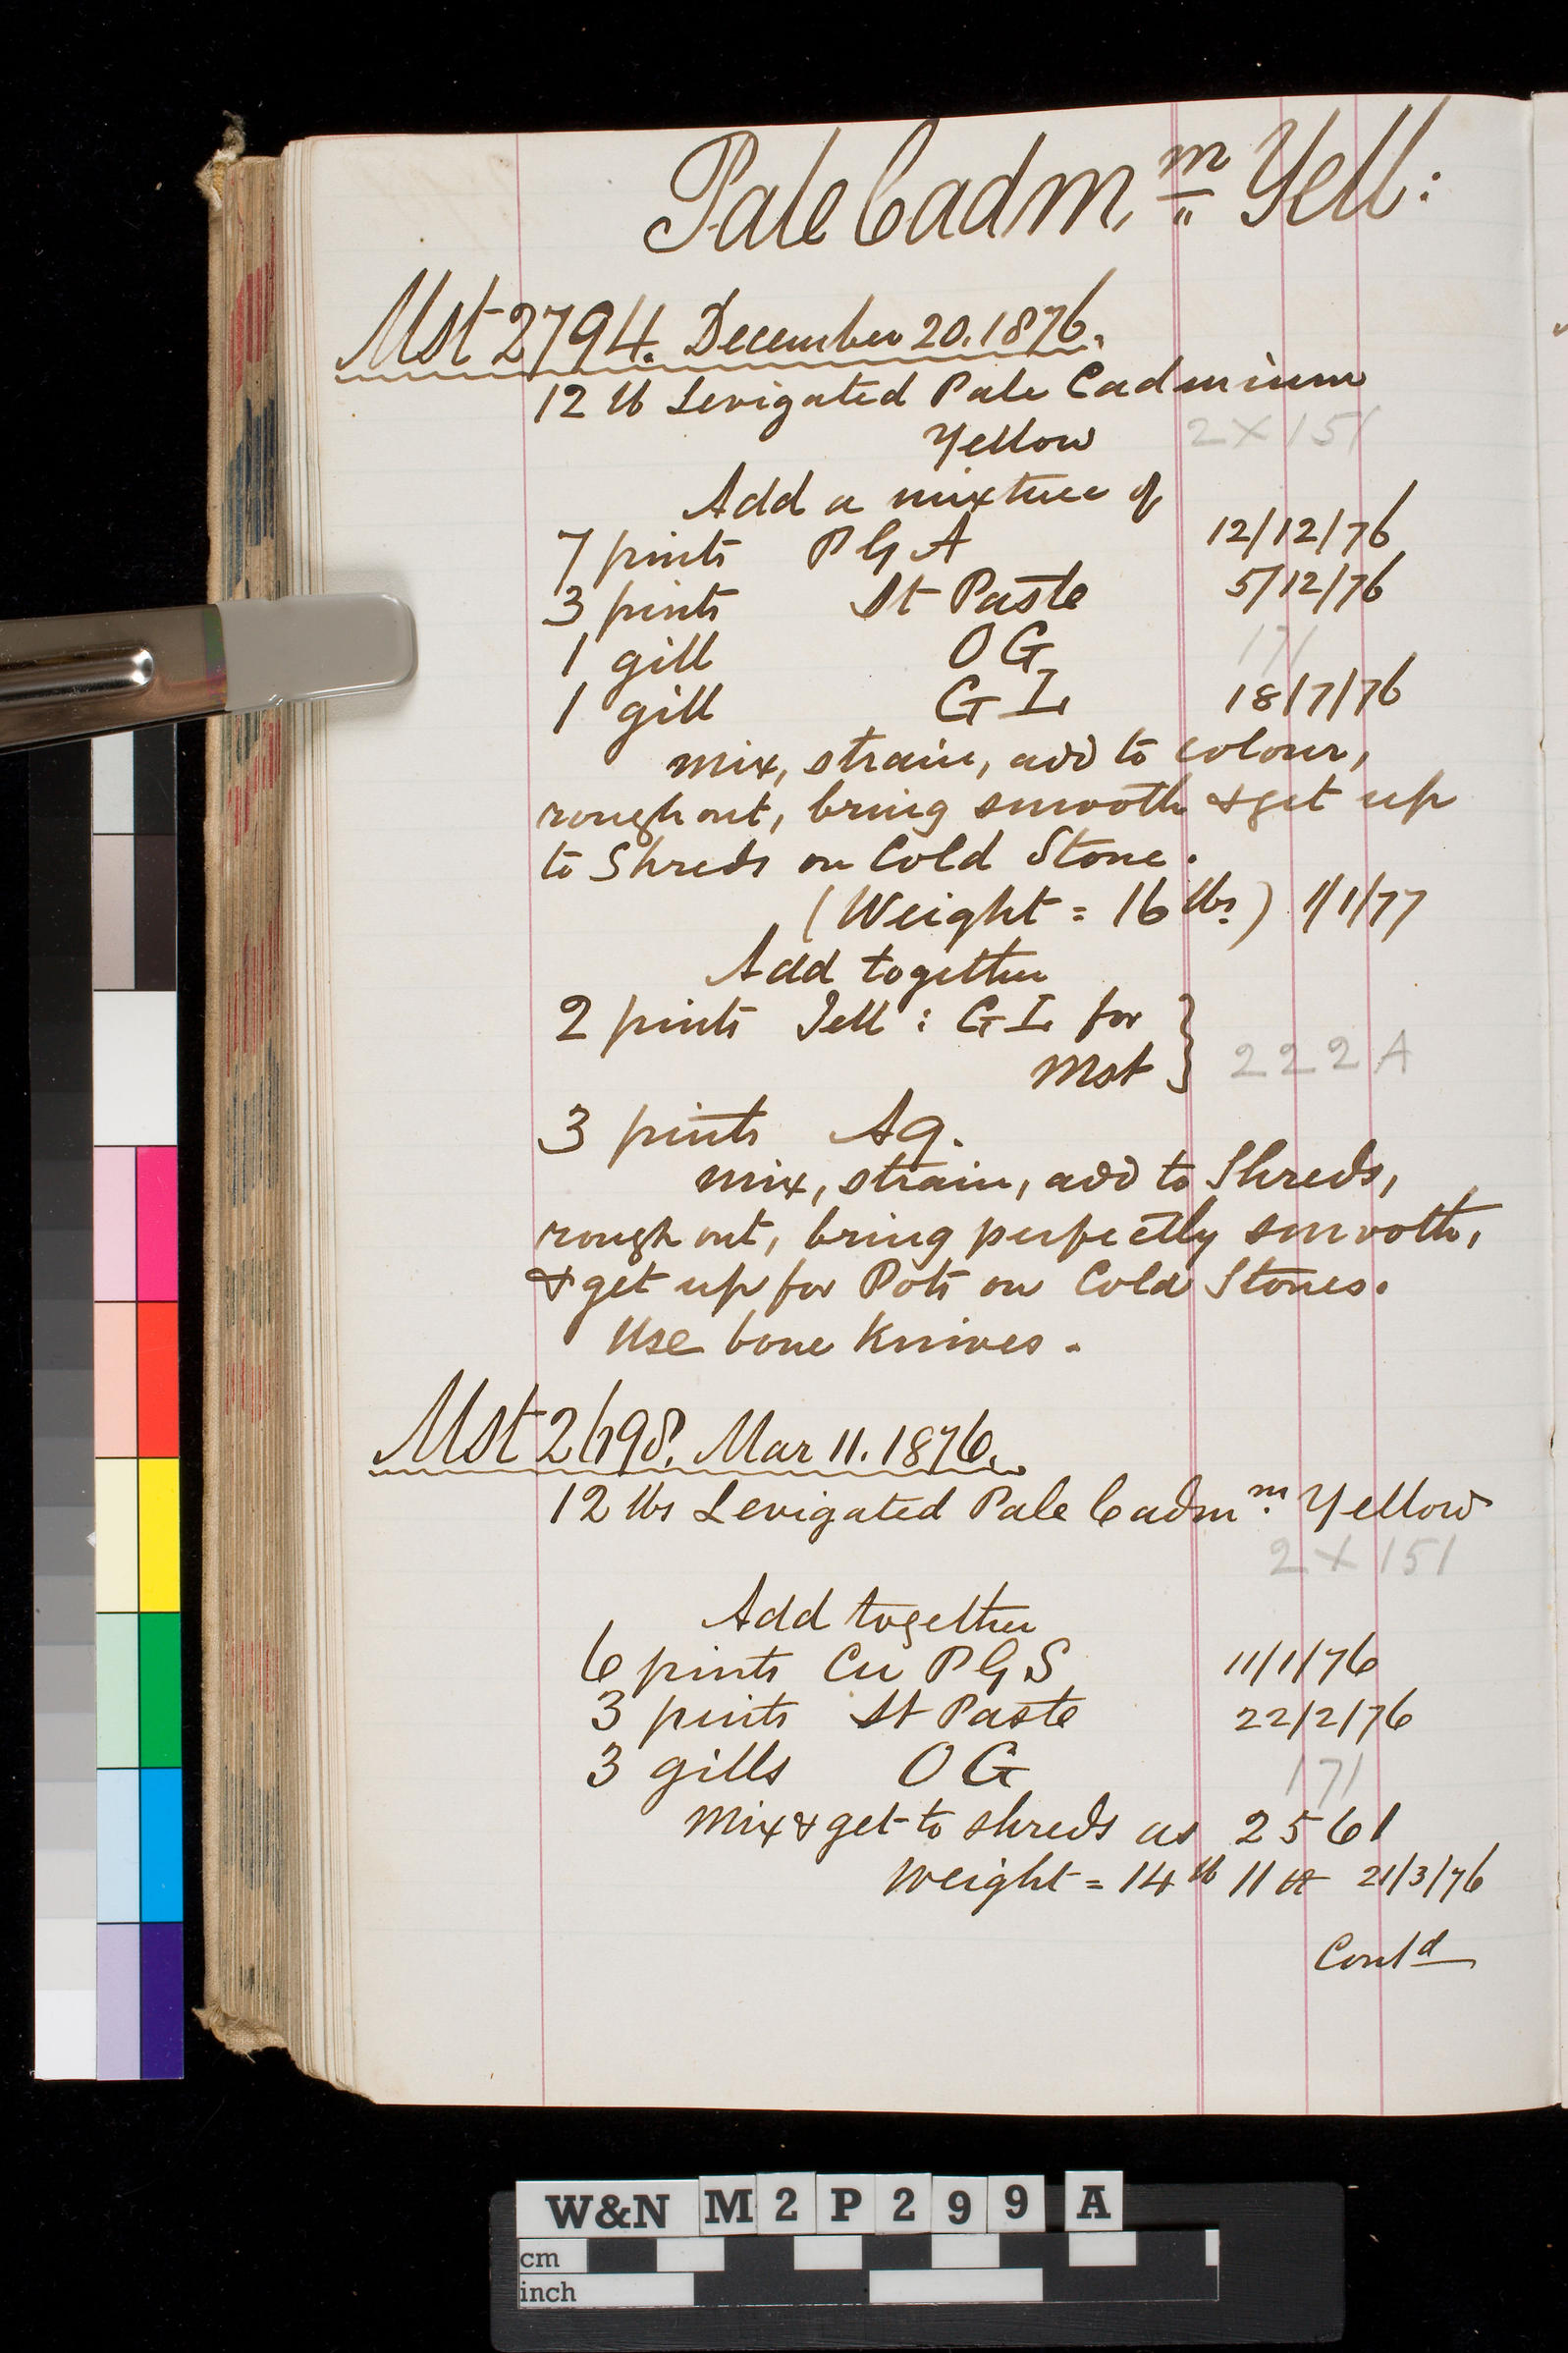 Pale Cadm.m Yell:
Mst 2794. December 20. 1876.
12 lb Levigated Pale Cadmium
Yellow 2X151
Add a mixture of
7 pints P G A 12/12/76
3 pints St Paste 5/12/76
1 gill O G 171
1 gill G L 18/7/76
mix, strain, add to colour,
rough out, bring smooth & get up
to Shreds on Cold Stone.
(Weight = 16 lbs.) 1/1/77
Add together
2 pints Jell: G L for
Mst } 222A
3 pints Aq.
mix, strain, add to Shreds,
rough out, bring perfectly smooth,
& get up for Pots on Cold Stones.
Use bone Knives.
Mst 2698. Mar 11. 1876.
12 lbs Levigated Pale Cadm.m Yellow
2X151
Add together
6 pints Cu P G S 11/1/76
3 pints St Paste 22/2/76
3 gills O G 171
Mix & get to shreds as 2561
Weight = 14 lb 11 oz 21/3/76
Contd
W&N M2P299A
cm
inch